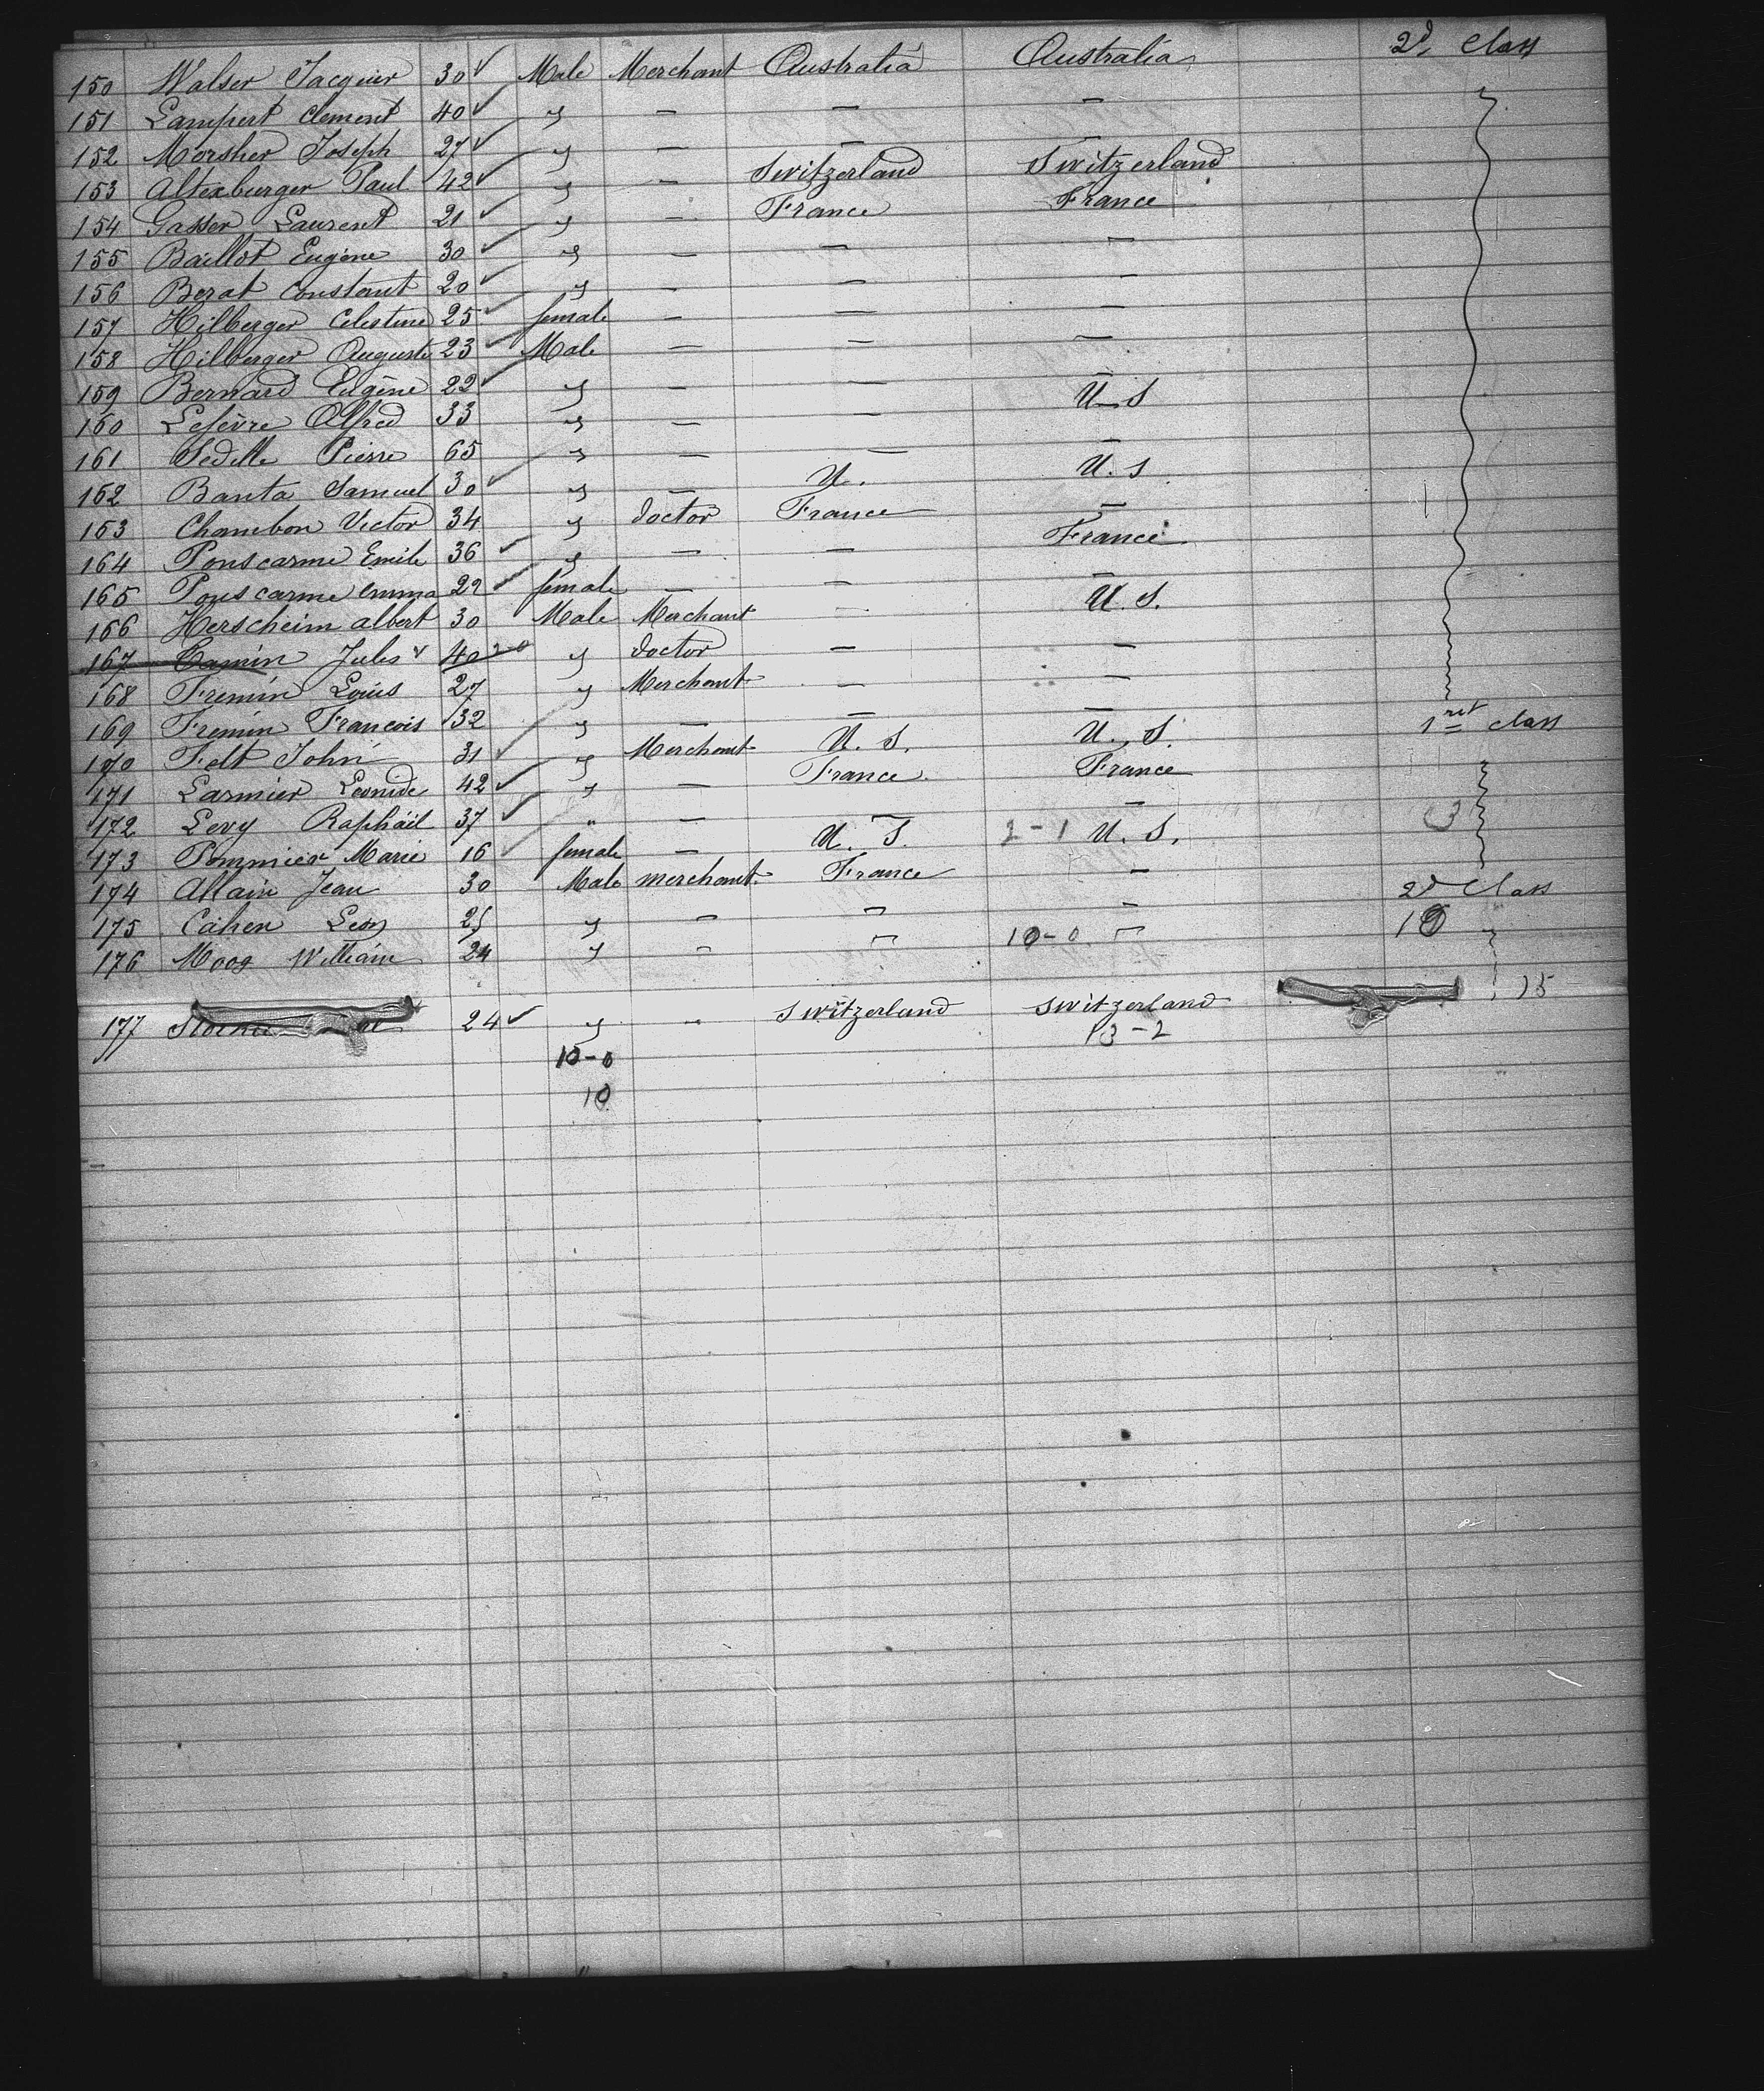 2d Class
150 Walser Jacquier 30 ✓ Male Merchant Australia Australia
151 Lampert Clement 40 ✓ y — — —
152 Morsher Joseph 27 ✓ y — — —
153 Altenburger Paul 42 ✓ y — Switzerland Switzerland
154 Gasser Laurent 21 ✓ y — France France
155 Baillot Eugène 30 ✓ y — — —
156 Berat Constant 20 ✓ y — — —
157 Hilberger Celestine 25 ✓ female — — —
158 Hilberger Auguste 23 ✓ Male — — —
159 Bernard Eugène 22 ✓ y — — U. S
160 Lefèvre Alfred 33 y — — —
161 Sedille Pierre 65 y — — U. S
162 Banta Samuel 30 ✓ y — U. —
163 Chambon Victor 34 y doctor France France
164 Ponscarme Emile 36 ✓ y — — —
165 Ponscarme emma 22 ✓ female — — U. S.
166 Herscheim albert 30 Male Merchant — —
167 Camin Jules 40 y doctor — —
168 Fremin Louis 27 y Merchant — —
169 Fremin Francois 32 y — — —
1ret class
170 Felt John 31 ✓ y Merchant U. S. U. S.
171 Larmier Leonide 42 ✓ y — France France
172 Levy Raphäil 37 ✓ " — — —
173 Pommier Marie 16 ✓ female — U. S. 2-1 U. S. 3
174 Allain Jean 30 Male merchant France — 2d Class
175 Cahen Leon 25 y — — — 10
176 Moog William 24 y — — 10-0 —
15
177 24 ✓ y — Switzerland Switzerland
10-0 13-2
10